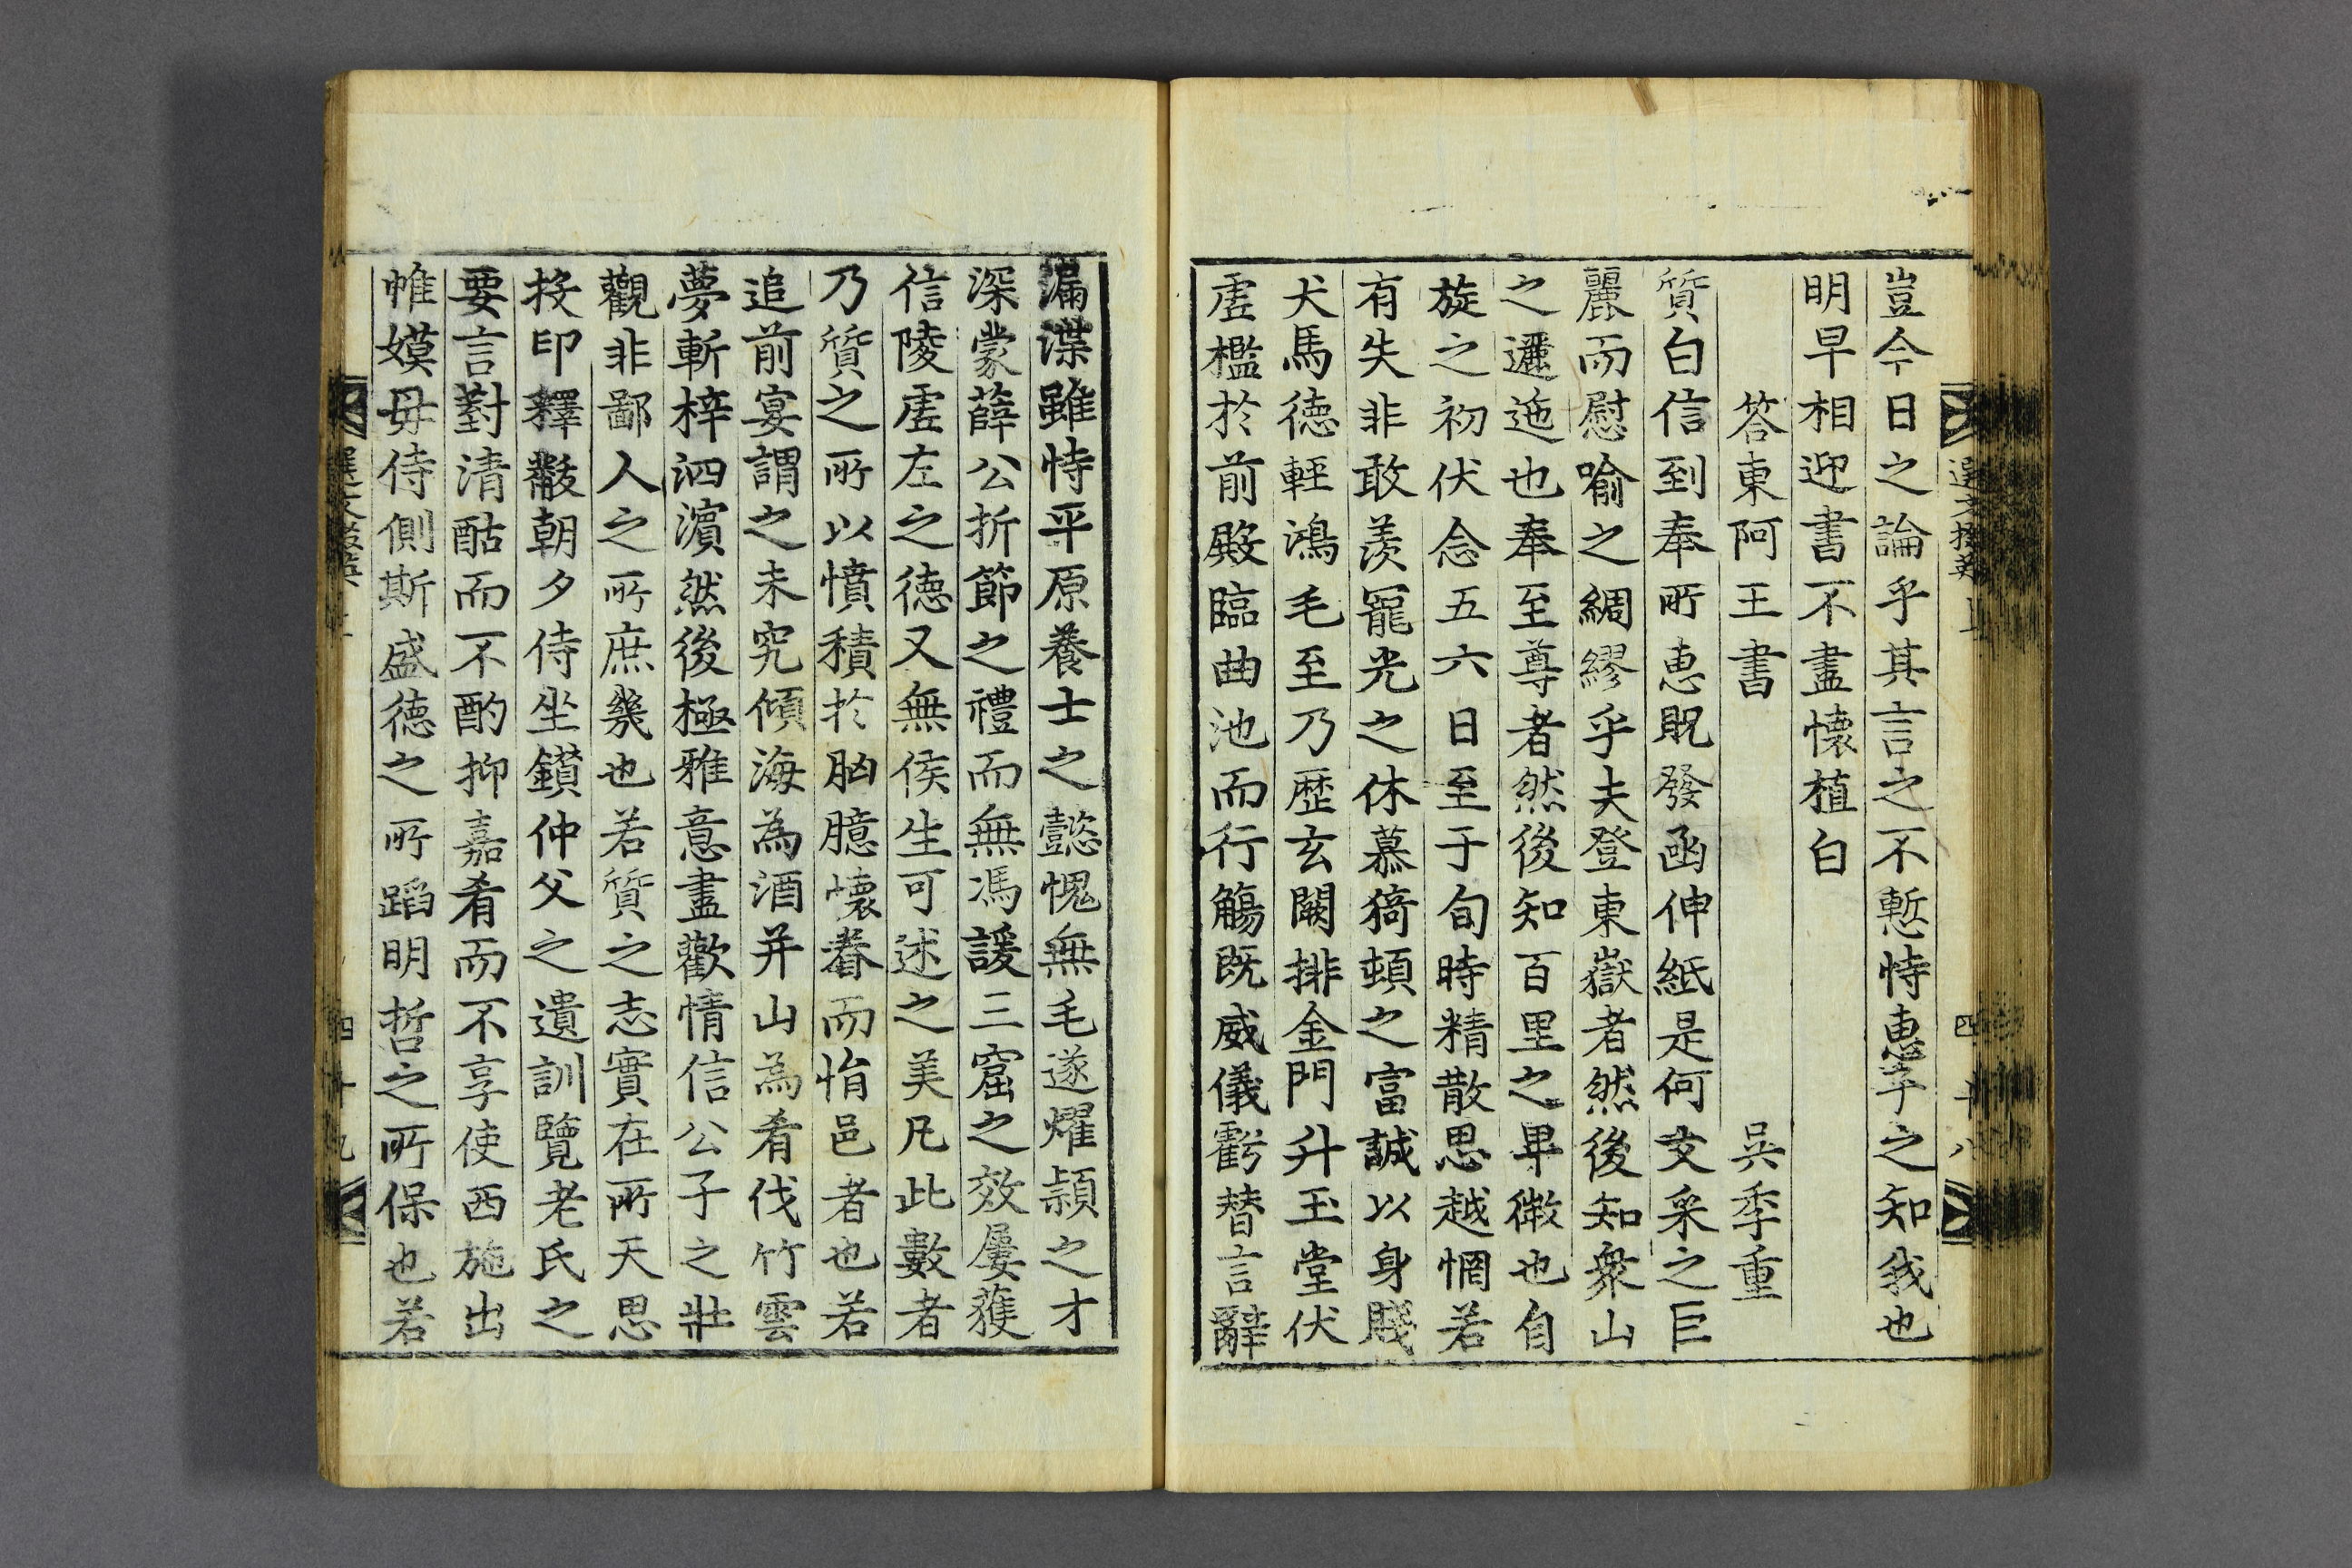 豈今日之論乎其言之不慙恃惠子之知我也
明早相迎書不盡懷植白
答東阿王書 吳季重
質白信到奉所惠貺發函伸紙是何文采之巨
麗而慰喻之綢繆乎夫登東嶽者然後知衆山
之邐迤也奉至尊者然後知百里之卑微也自
旋之初伏念五六日至于旬時精散思越惘若
有失非敢羨寵光之休慕猗頓之富誠以身賤
犬馬德輕鴻毛至乃歷玄闕排金門升玉堂伏
虛檻於前殿臨曲池而行觴既威儀虧替言辭
四十八
漏渫雖恃平原養士之懿愧無毛遂燿穎之才
深蒙薛公折節之禮而無馮諼三窟之效屢獲
信陵虛左之德又無侯生可述之美凡此數者
乃質之所以憤積於胸臆懷眷而悁邑者也若
追前宴謂之未究傾海為酒并山為肴伐竹雲
夢斬梓泗濱然後極雅意盡歡情信公子之壯
觀非鄙人之所庶幾也若質之志實在所天思
投印釋黻朝夕侍坐鑚仲父之遺訓覽老氏之
要言對清酤而不酌抑嘉肴而不享使西施出
帷嫫母侍側斯盛德之所蹈明哲之所保也若
四十九